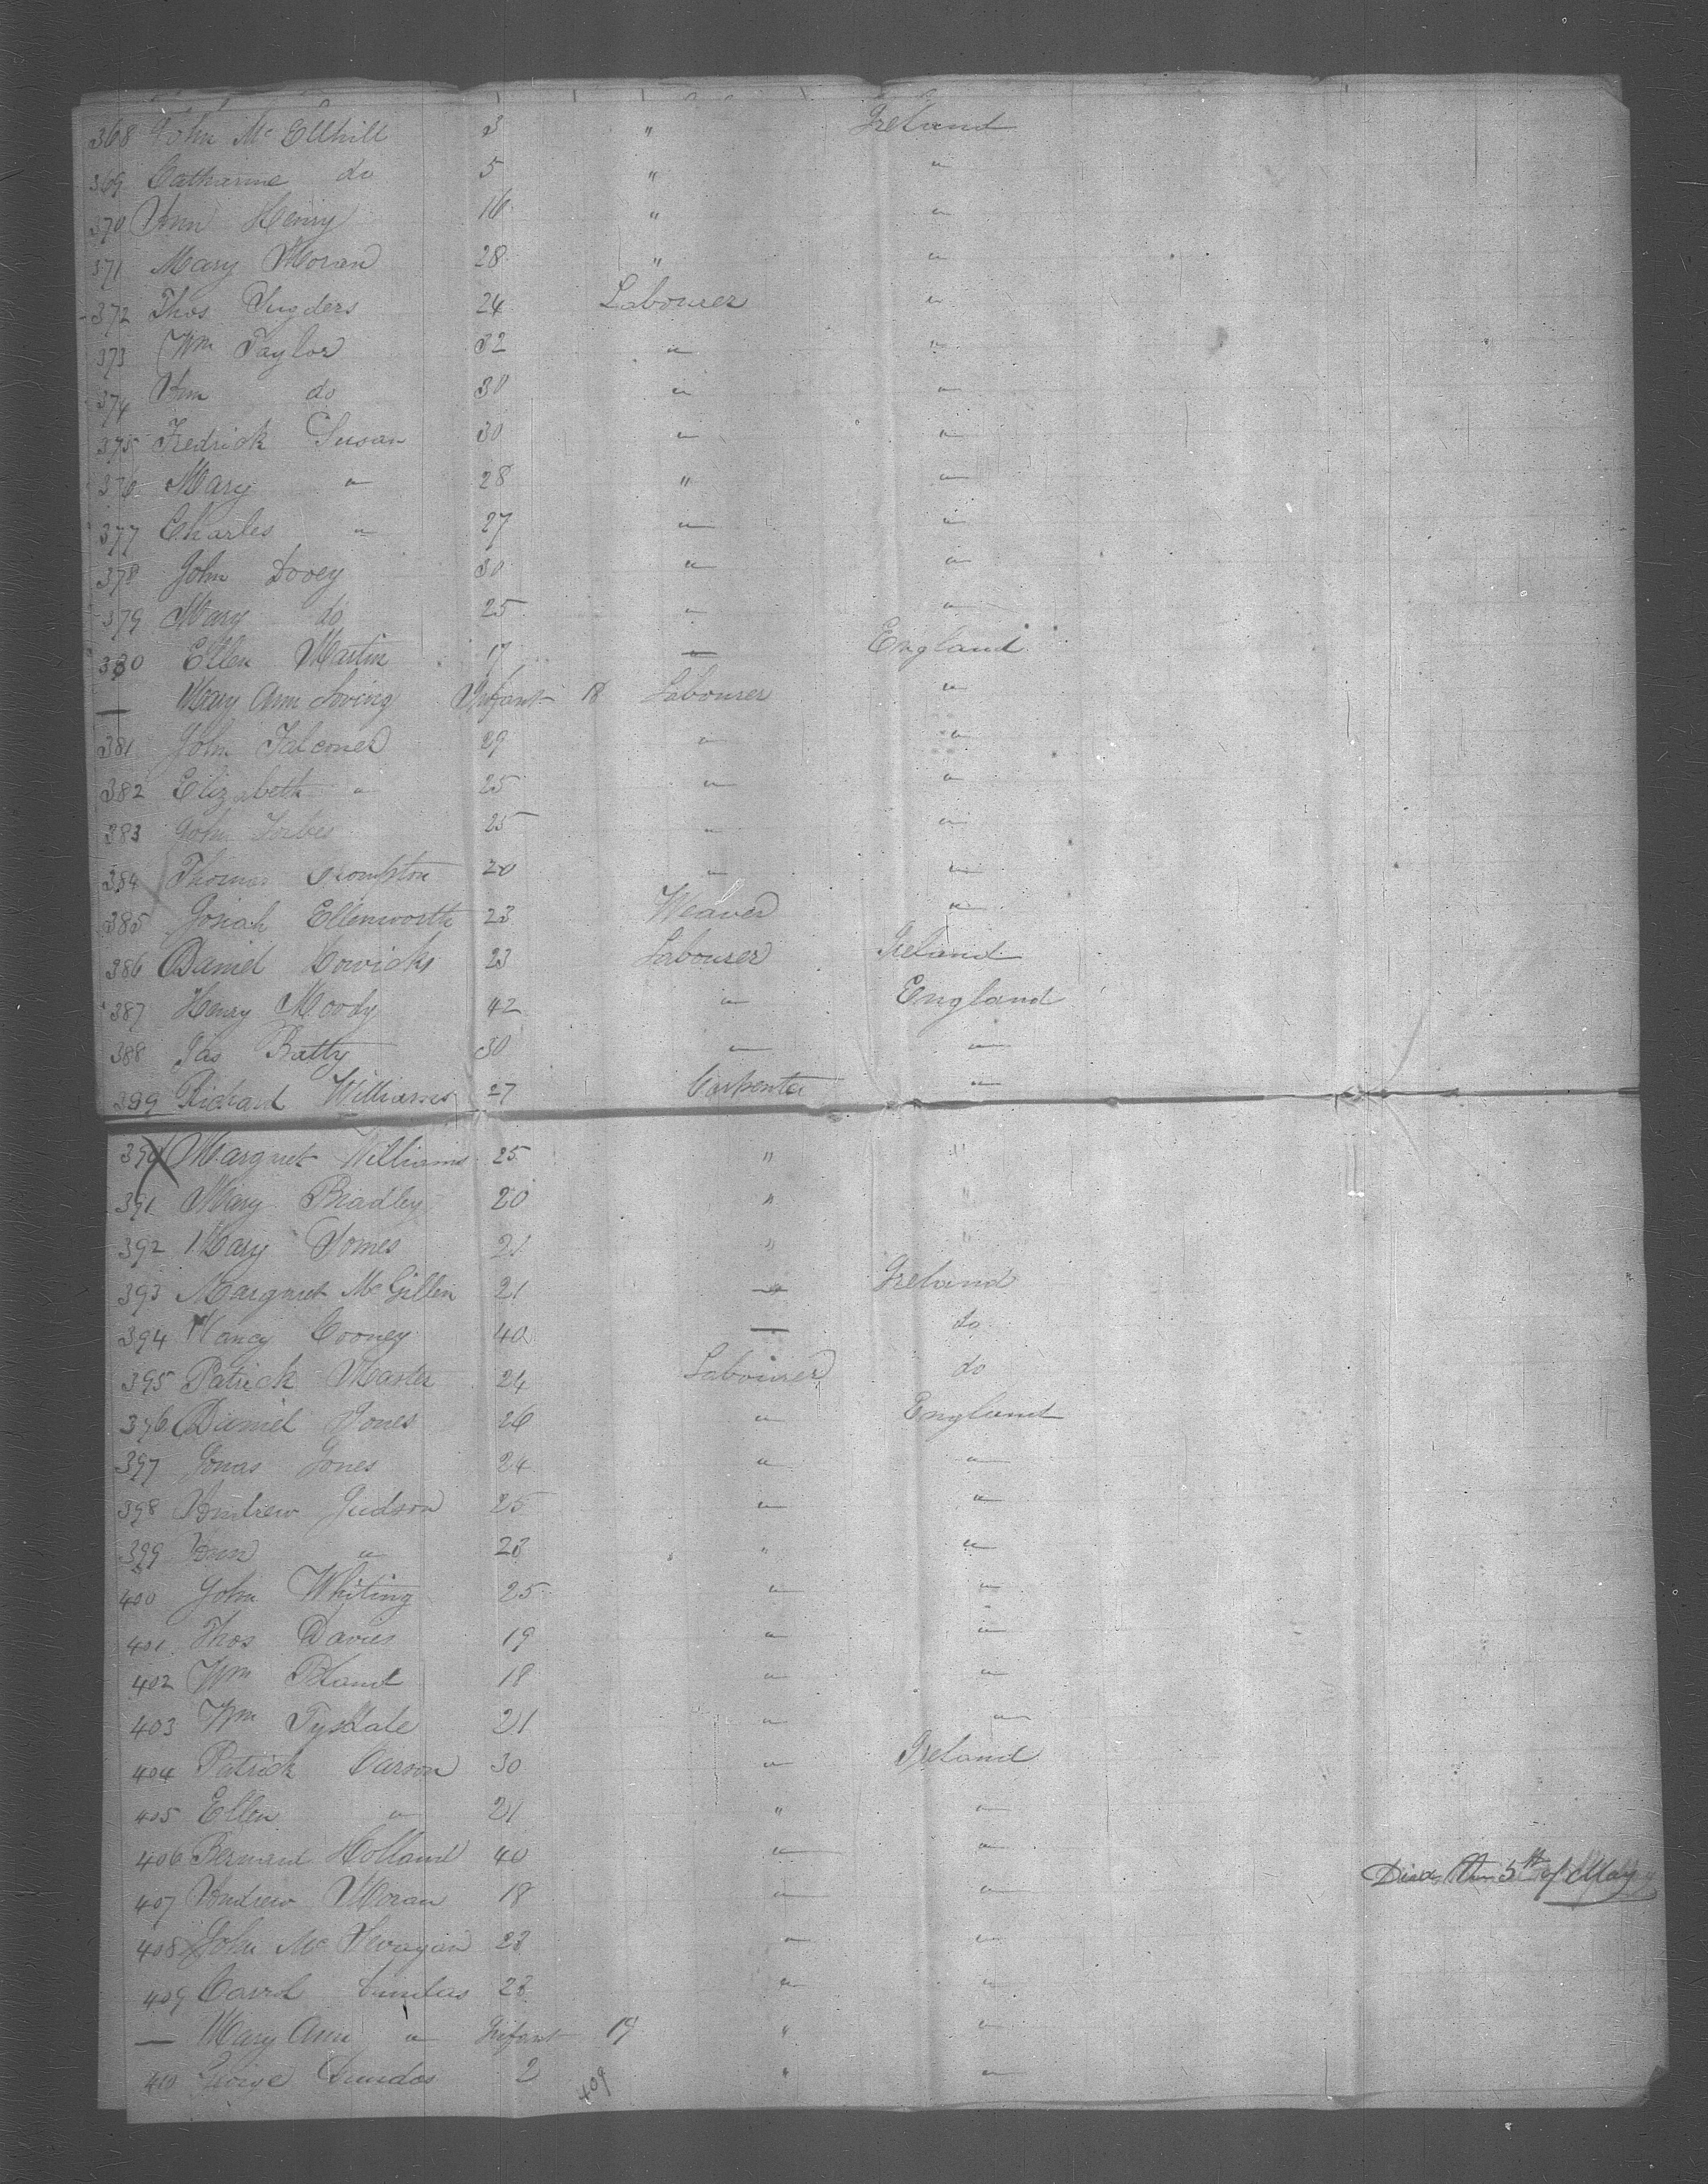 368 John Mc Ellhill 3 " Ireland
369 Catharine do 5 " "
370 Ann Henry 16 " "
371 Mary Moran 28 " "
372 Thos 24 Labourer "
373 Wm Taylor 32 " "
374 Ann do 30 " "
375 Fredrick Susan 30 " "
376 Mary " 28 " "
377 Charles " 27 " "
378 John Dovey 30 " "
379 Mary do 25 " "
380 Ellen Martin 17 — England
— Mary Ann Infant 18 Labourer "
381 John Falconer 29 " "
382 Elizabeth " 25 " "
383 John Forbes 25 " "
384 Thomas Crompton 20 " "
385 Josiah Ellenworth 23 Weaver "
386 Daniel 23 Labourer Ireland
387 Henry Moody 42 " England
388 Jas Batty 30 " "
389 Richard Williams 27 Carpenter "
390 Margret Williams 25 " "
391 Mary Bradley 20 " "
392 Mary Jomes 21 " "
393 Margret Mc Gillen 21 — Ireland
394 Nancy Cooney 40 — do
395 Patrick Master 24 Labourer do
396 Daniel Jones 26 " England
397 Jonas Jones 24 " "
398 Andrew Judson 25 " "
399 Ann " 23 " "
400 John Whiting 25 " "
401 Thos Davies 19 " "
402 Wm Bland 18 " "
403 Wm Tysdale 21 " "
404 Patrick Carson 30 " Ireland
405 Ellen " 21 " "
406 Bernard Holland 40 " " Died the 5th of May
407 Andrew Moran 18 " "
408 John Mc 23 " "
409 Dundas 23 " "
— Mary Ann " Infant 19 " "
410 George Dundas 2 " "
409